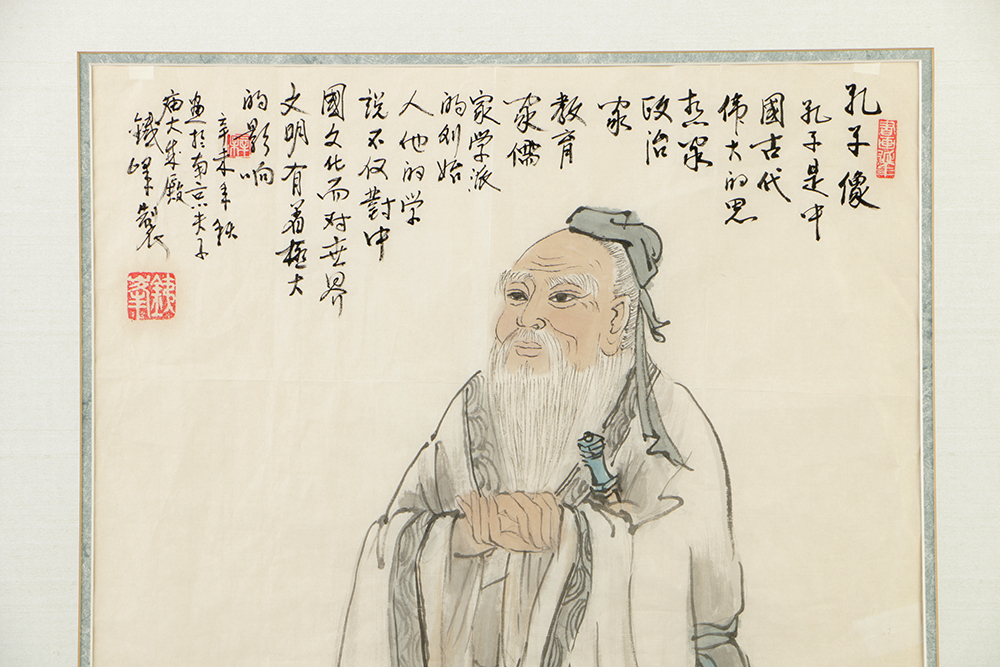 孔子像
孔子是中
國古代
伟大的思
想家
政治
家
教育
家儒
家学派
的创始
人他的学
説不仅對中
國文化而对世界
文明有着極大
的影响
辛未年秋
画於南京夫子
庙大成殿
鐵峰製